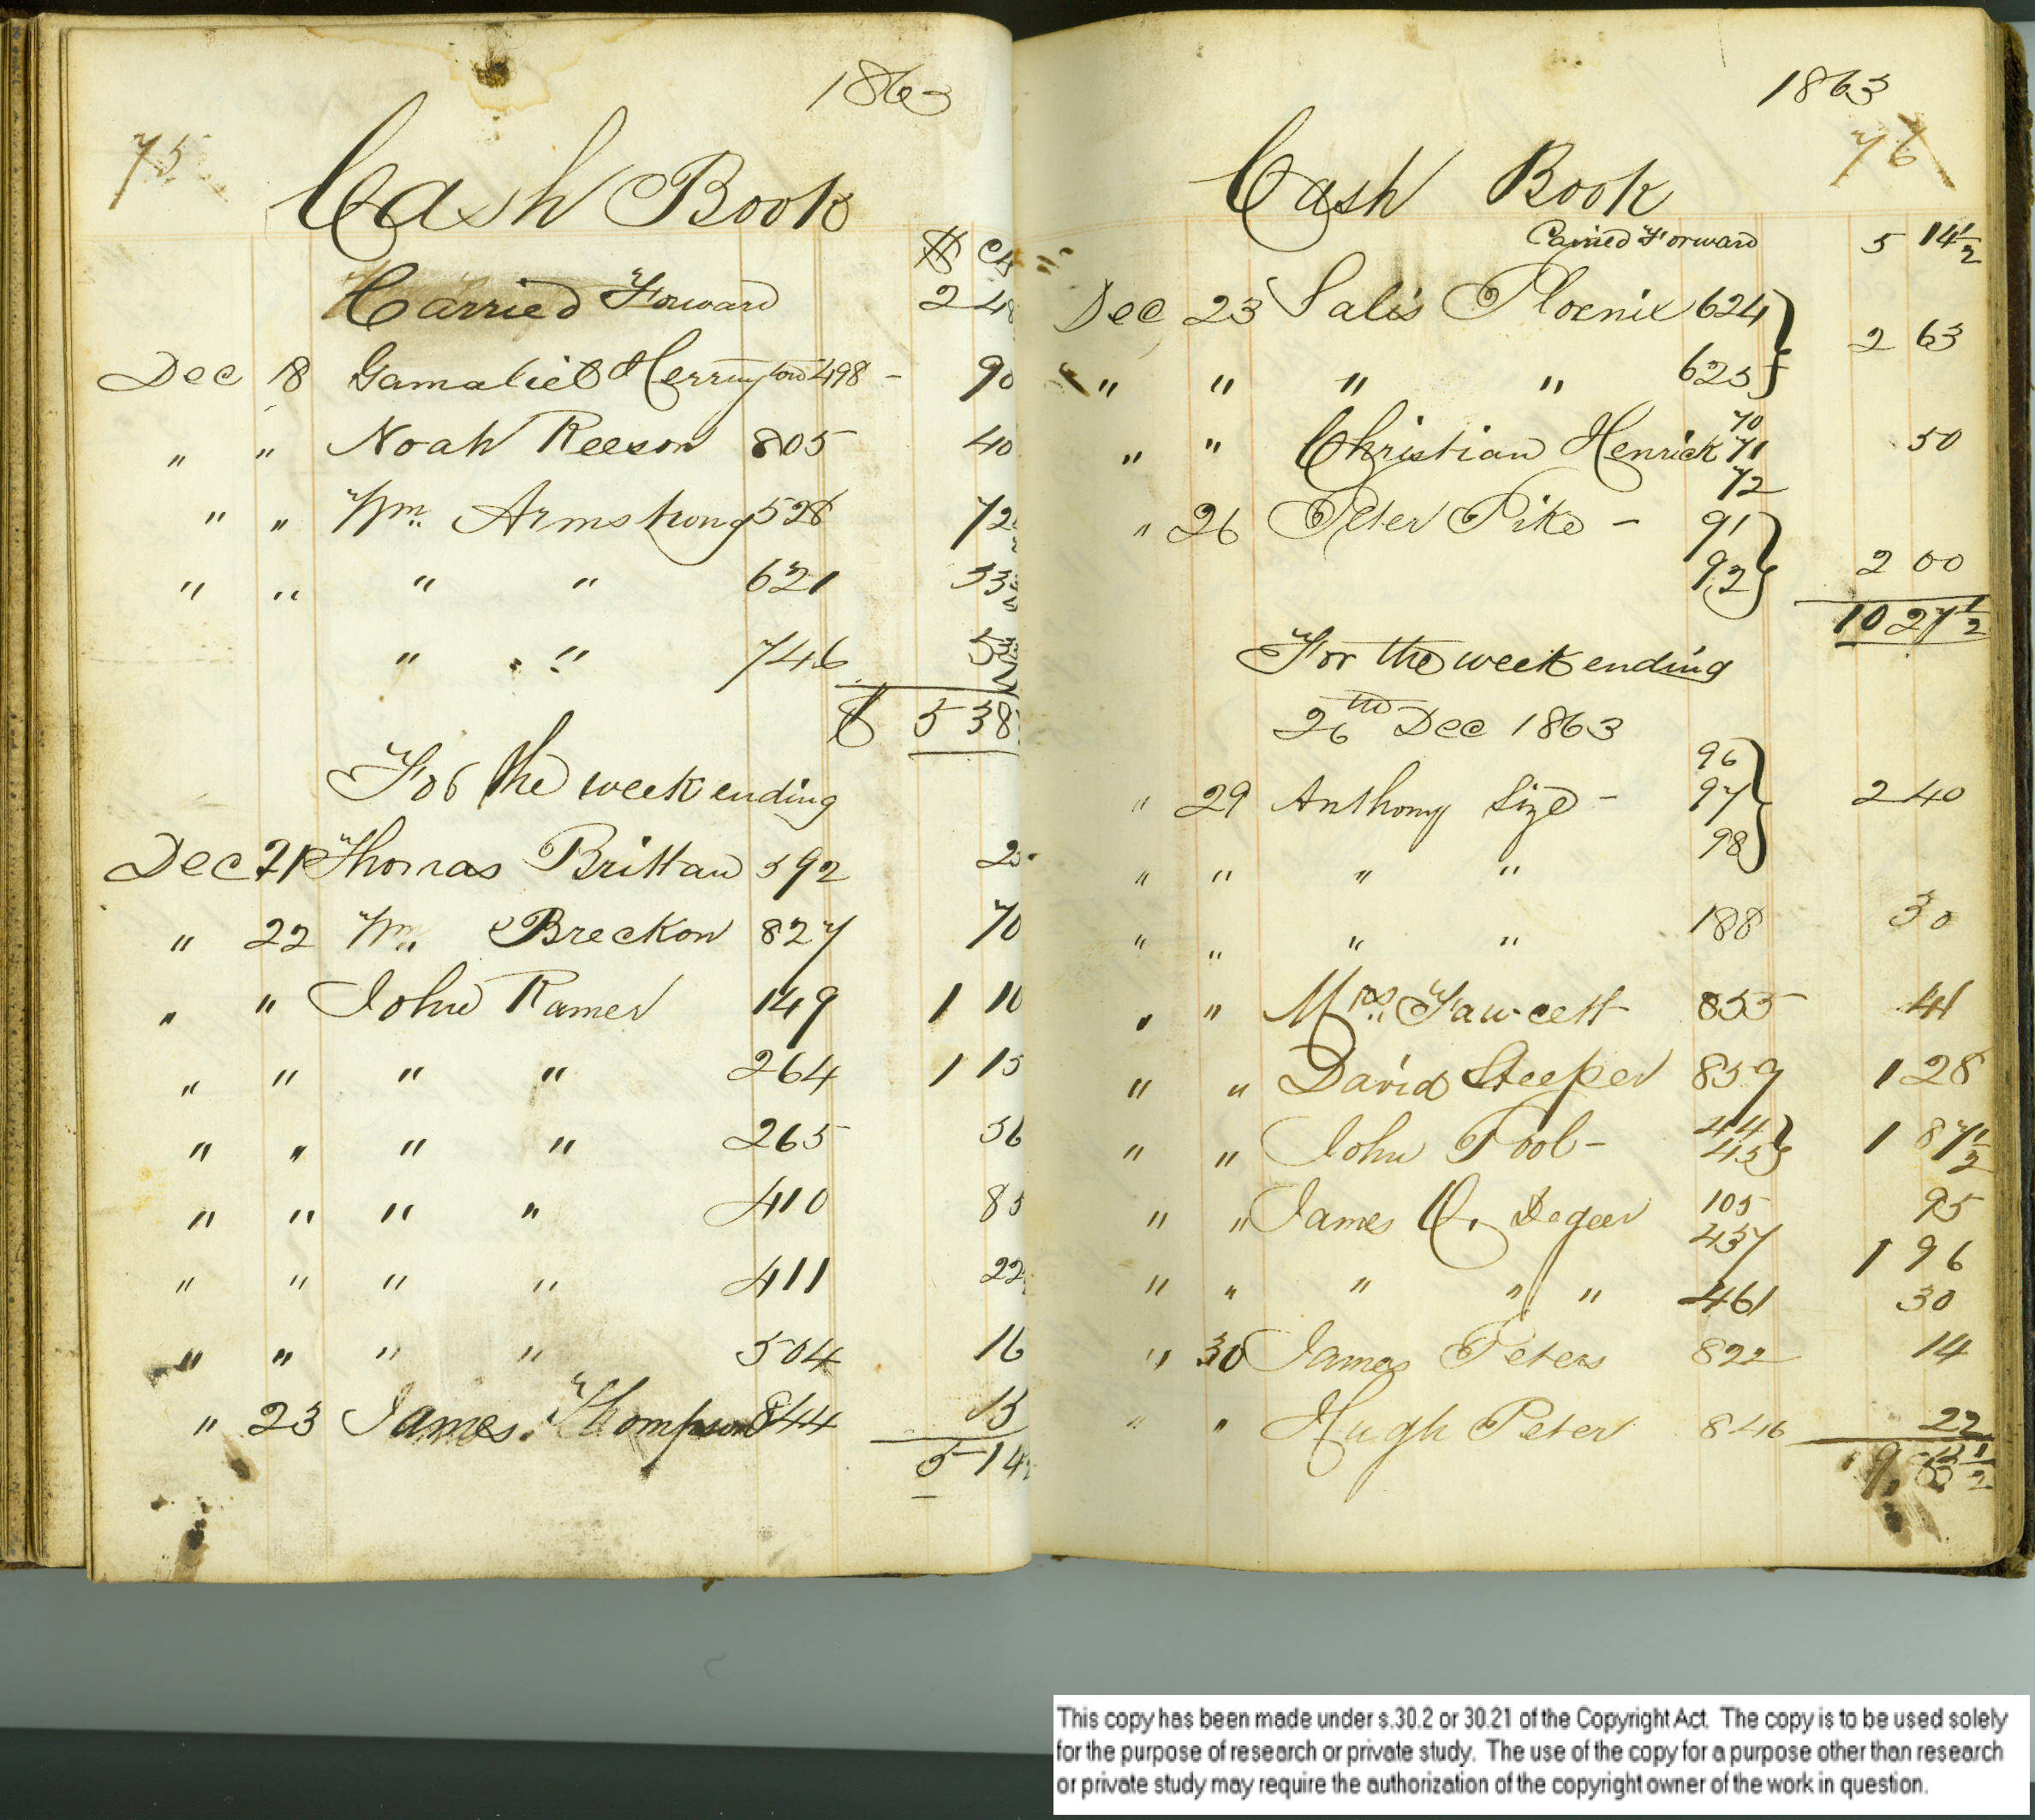 1863
75
Cash Book
$ cts
Carried Forward 2 48
Dec 18 Gamaliel Herrington 498 - 90
" " Noah Reeson 805 40
" " Wm. Armstrong 528 72
" " " " 621 33
" " 746 5
$ 5 38
For the week ending
Dec 21 Thomas Brittan 592 25
" 22 Wm. Breckon 827 70
" " John Ramer 149 1 10
" " " " 264 1 15
" " " " 265 56
" " " " 410 85
" " " " 411 22
" " " " 504 16
" 23 James Thompson 844 15
5 14
1863
76
Cash Book
Carried Forward 5 14½
Dec 23 Salis Phoenix 624 }
2 63
" " " " 625 }
70
" " Christian Henrick 71 50
72
" 26 Peter Pike - 91 }
92 } 2 00
10 27½
For the week ending
26th Dec 1863
96
" 29 Anthony Size - 97 } 2 40
98
" " " "
" " " " 188 30
" " Mrs. Fawcett 855 41
" " David Steeper 859 1 28
" " John Pool - 44 45 } 1 87½
" " James O. Degeer 105 95
457 1 96
" " " " " 461 30
" 30 James Peters 822 14
" " Hugh Peter 846 22
9,
This copy has been made under s.30.2 or 30.21 of the Copyright Act. The copy is to be used solely
for the purpose of research or private study. The use of the copy for a purpose other than research
or private study may require the authorization of the copyright owner of the work in question.